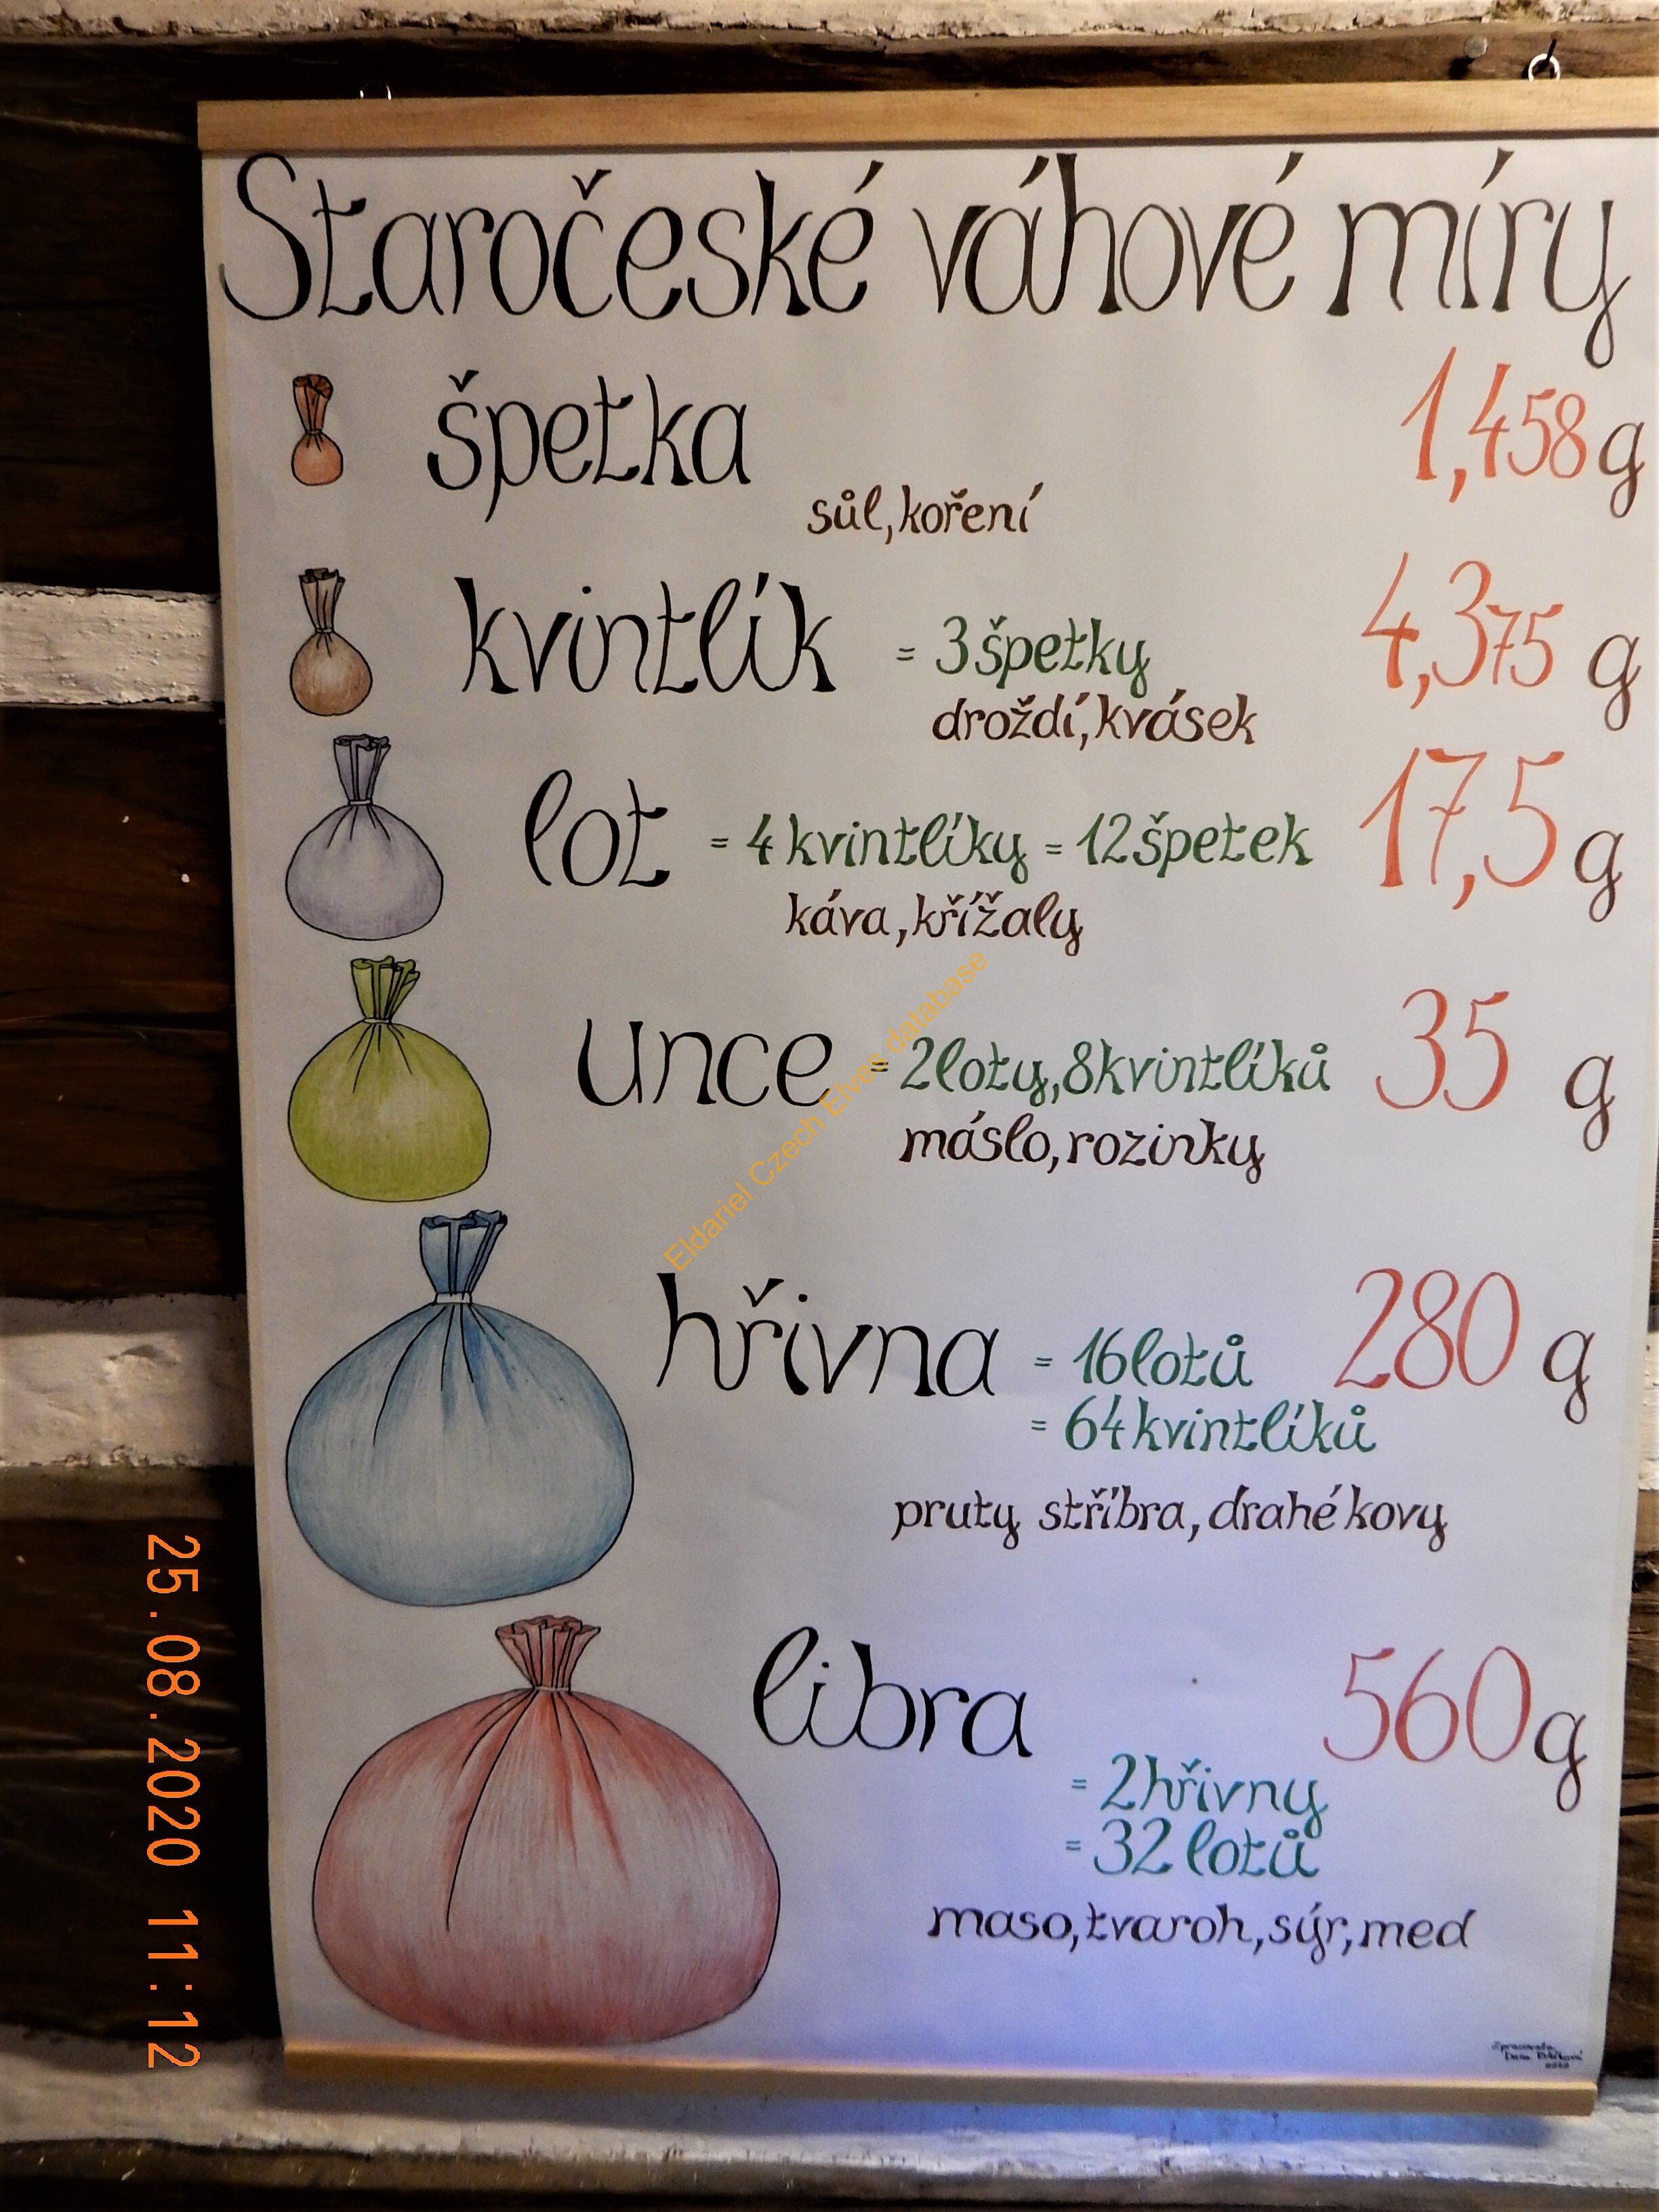 Staročeské váhové míry
špetka 1,458 g
sůl, koření
kvintlík = 3 špetky 4,375 g
droždí, kvásek
lot = 4 kvintlíky = 12 špetek 17,5 g
káva, křížaly
unce = 2 loty, 8 kvintlíků 35 g
máslo, rozinky
Eldariel Czech Elves database
hřivna = 16 lotů 280 g
= 64 kvintlíků
pruty stříbra, drahé kovy
libra 560 g
= 2 hřivny
= 32 lotů
maso, tvaroh, sýr, med
Zpracovala
Dana
2020
25.08.2020 11:12